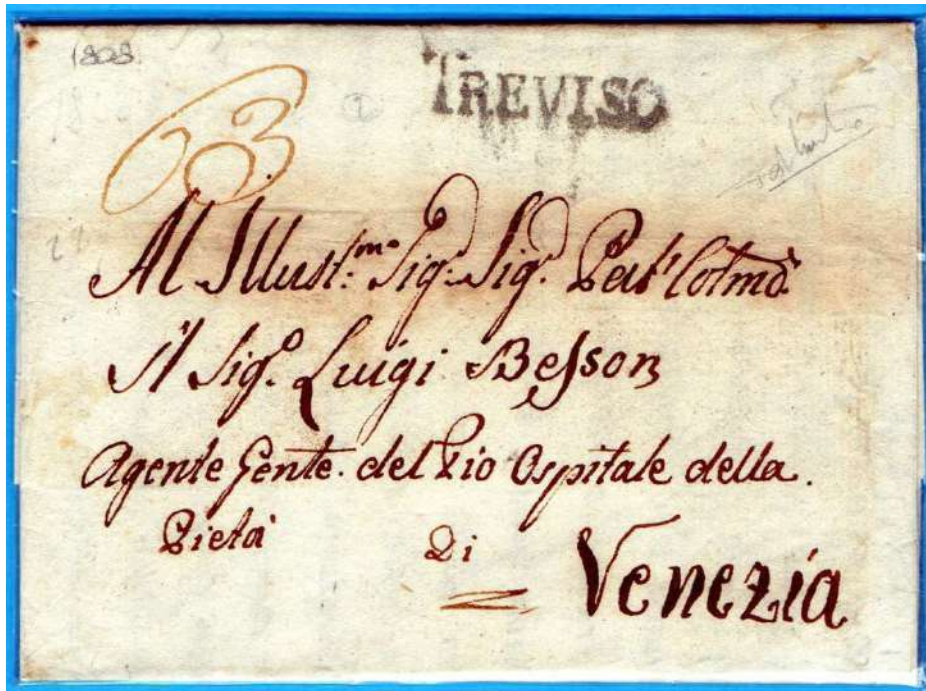 1808
TREVISO
63
Al Illust:mo Sig:r Sig:r
Il Sig:o Luigi Besson
Agente Gente. del Pio Ospitale della.
Pietà Di Venezia